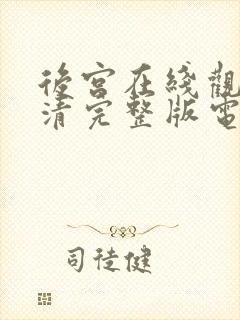 後宮在綫觀
清完整版電
司徒健